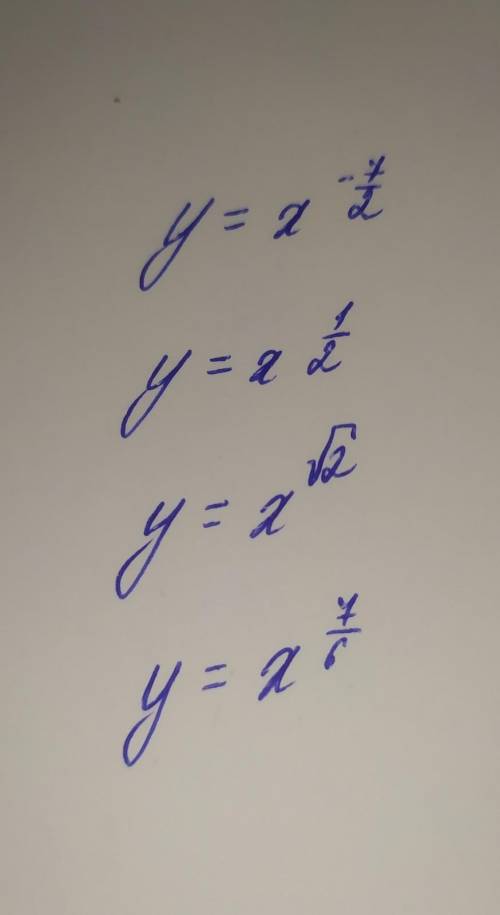 y = x^{-\frac{7}{2}}
y = x^{\frac{1}{2}}
y = x^{\sqrt{2}}
y = x^{\frac{7}{6}}